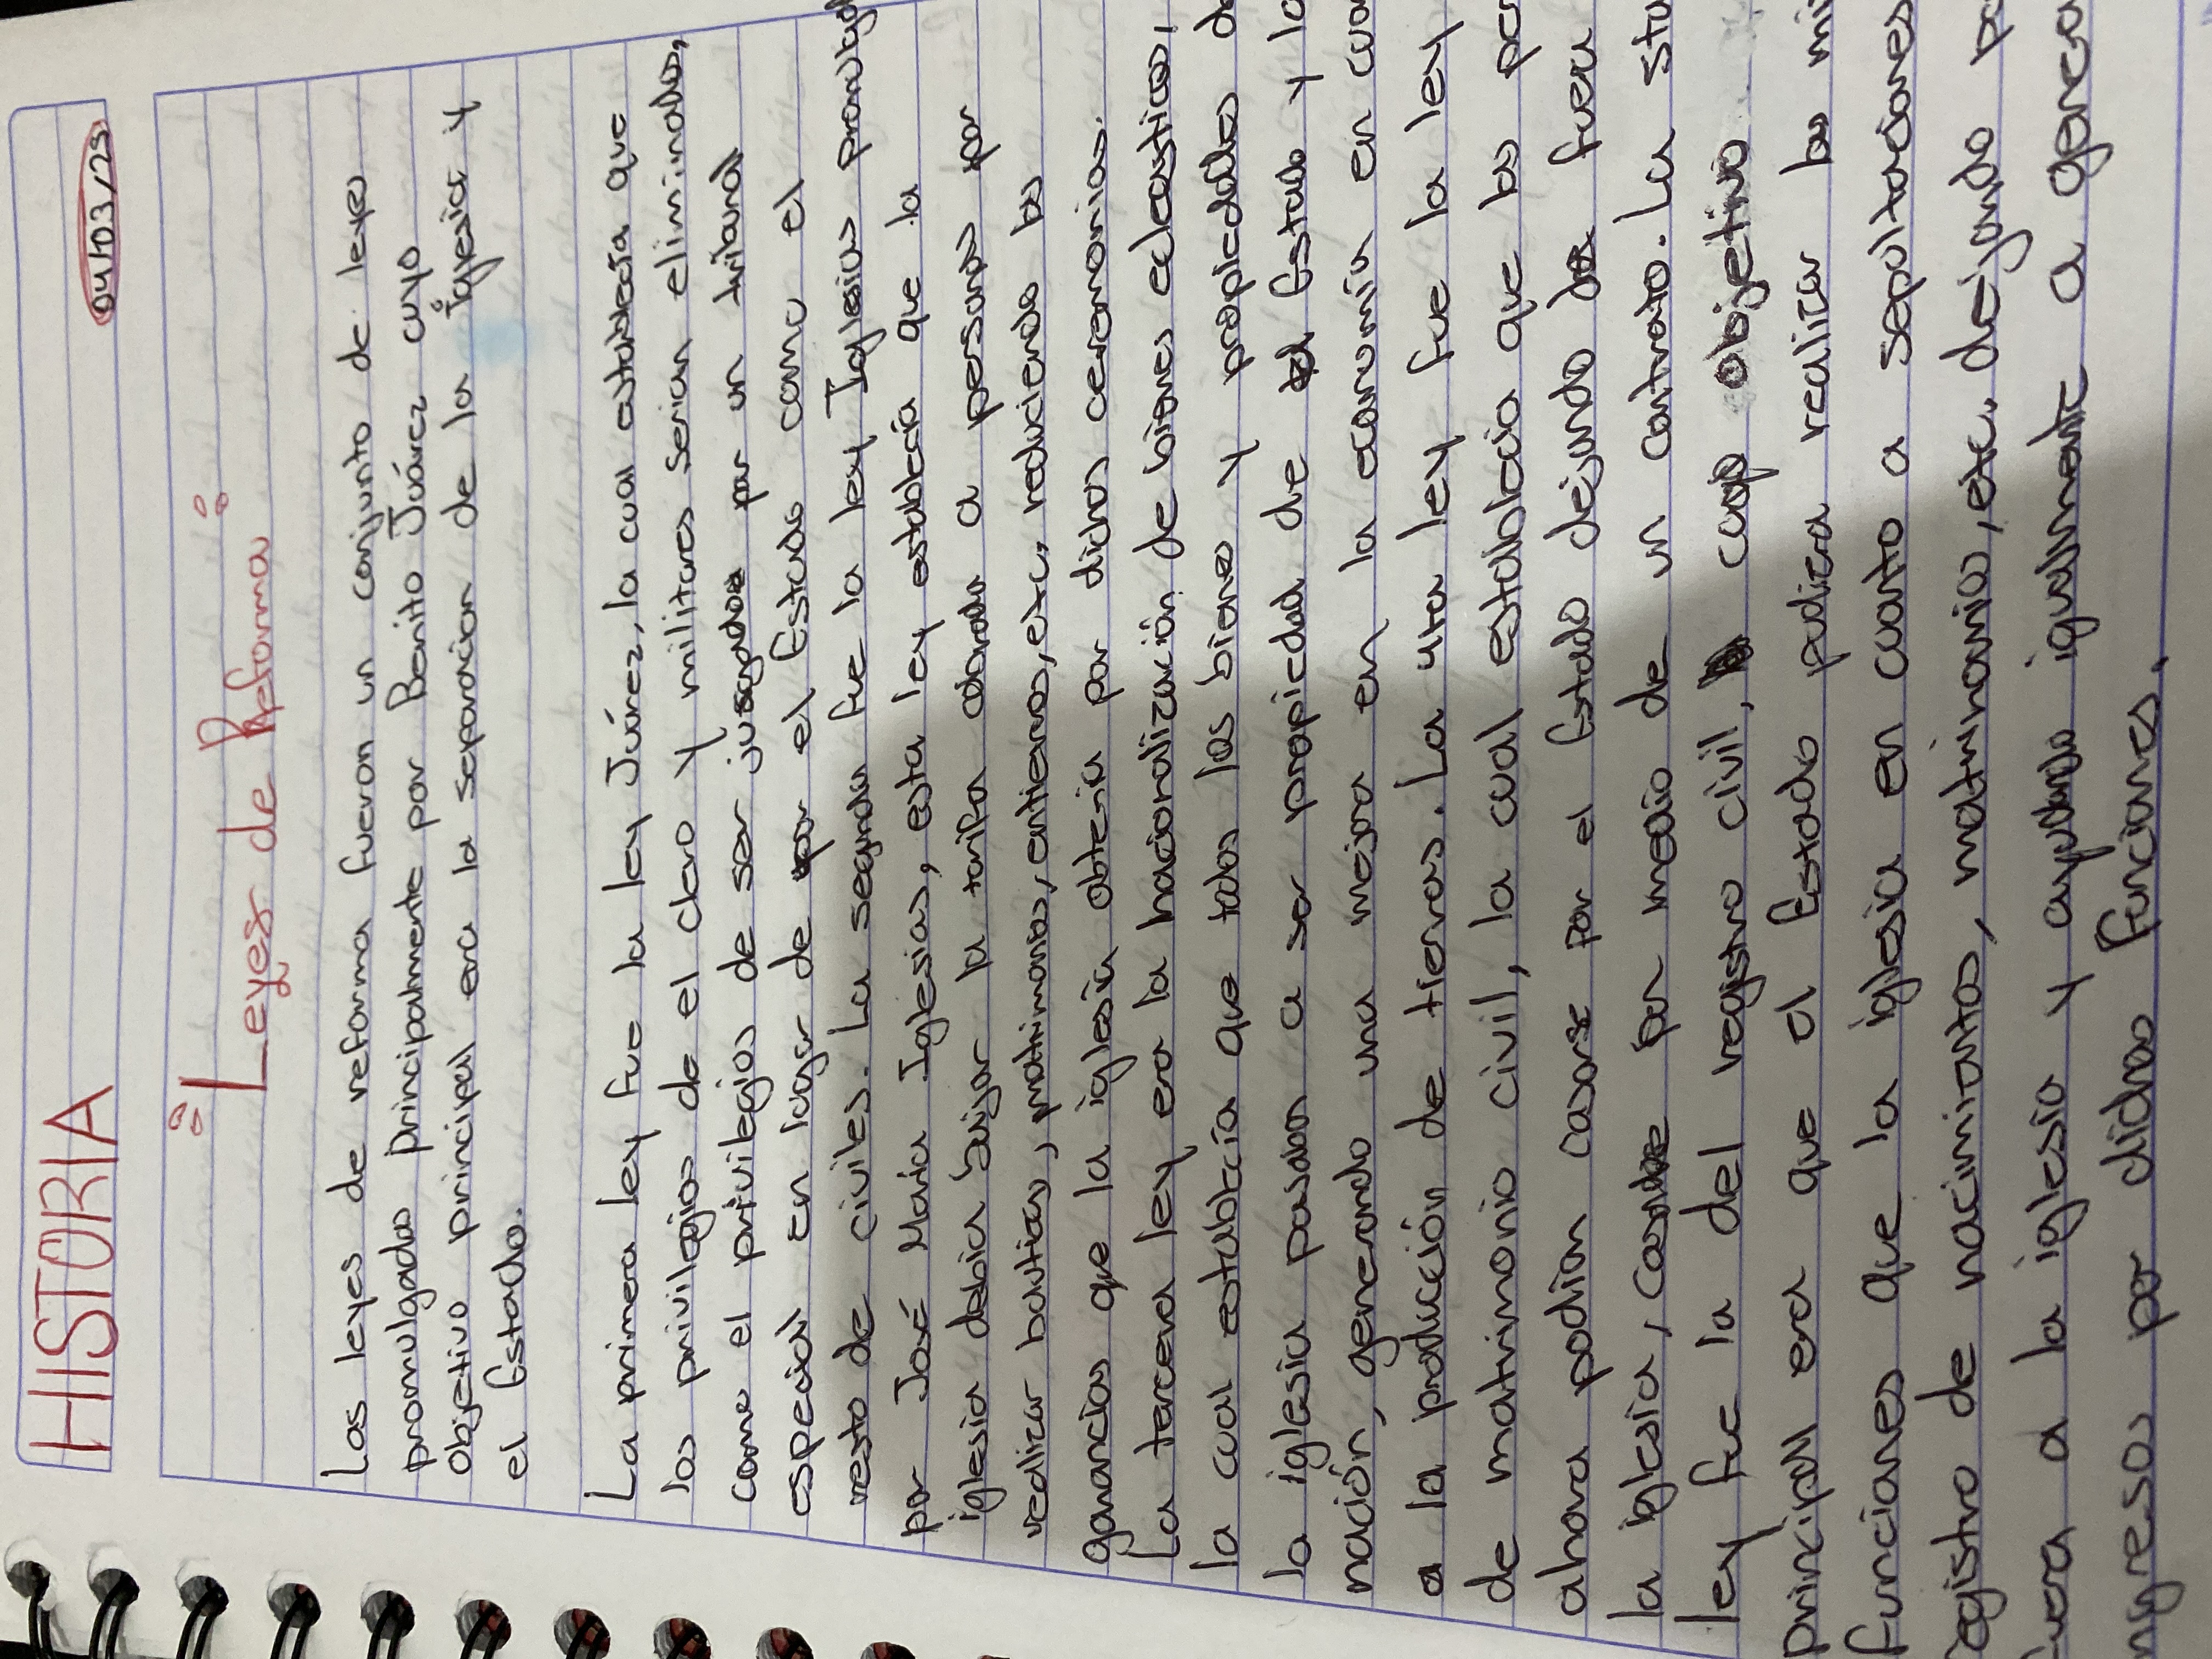 HISTORIA
04/03/25
Leyes de Reforma
Las leyes de reforma fueron un conjunto de leyes
promulgadas principalmente por Benito Juárez cuyo
objetivo principal era la separación de la iglesia y
el Estado.
La primera ley fue la ley Juárez, la cual establecía que
los privilegios de el clero y militares serían eliminados,
como el privilegios de ser juzgados por un tribunal
especial en lugar de por el Estado como el
resto de civiles. La segunda fue la ley Iglesias
por José María Iglesias, esta ley establecía que la
iglesia debía bajar la tarifa a personas por
realizar bautizos, matrimonios, entierros, etc, reduciendo las
ganancias que la iglesia obtenía por dichas ceremonias.
La tercera ley era la nacionalización de bienes eclesásticos,
la cual establecía que todos los bienes y propiedades de
la iglesia pasaban a ser propiedad de el Estado y la
nación, generando una mejora en la economía en
a la producción de tierras. La ley fue la ley
de matrimonio civil, la cual establecía que las
ahora podían casarse por el Estado dejando fuera
la iglesia, por medio de un contrato. La
ley fue la del registro civil, cuyo objetivo
principal era que el Estado pudiera realizar las
funciones que la iglesia en cuanto a sepultaciones
registro de nacimientos, matrimonios, etc. dejando
fuera a la iglesia y ayudando igualmente a
ingresos por dichas funciones.